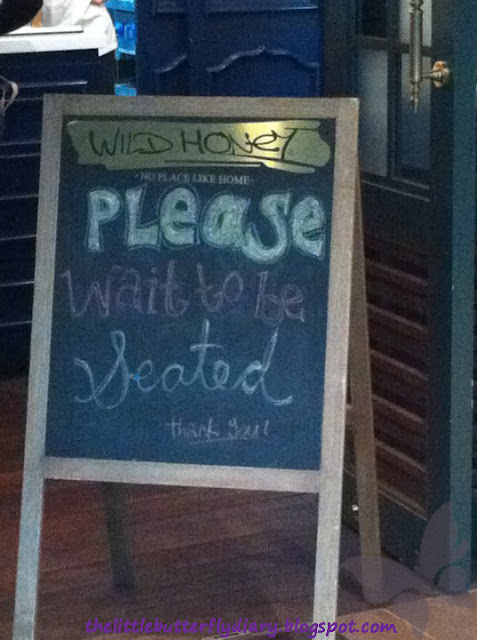 WILD HONEY
- NO PLACE LIKE HOME -
PLEASE
Wait to be
Seated
thank you!
thelittlebutterflydiary.blogspot.com